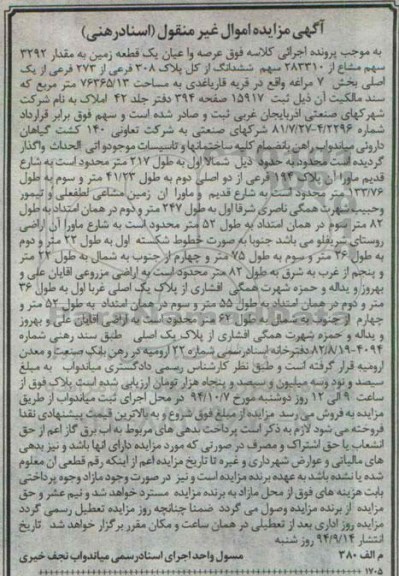 آگهی مزایده اموال غیر منقول (اسنادرهنی)
به موجب پرونده اجرائی کلاسه فوق عرصه وا عیان یک قطعه زمین به مقدار ۳۲۹۲
سهم مشاع از ۲۸۳۳۱۰ سهم ششدانگ از کل پلاک ۳۰۸ فرعی از ۲۷۳ فرعی از یک
اصلی بخش ۷ مراغه واقع در قریه قارياغدی به مساحت ۷۶۳۶۵/۱۳ متر مربع که
سند مالکیت آن ذیل ثبت ۱۵۹۱۷ صفحه ۳۹۴ دفتر جلد ۴۲ املاک به نام شرکت
شهرکهای صنعتی آذربایجان غربی ثبت و صادر شده است و سهم فوق برابر قرارداد
شماره ۸۱/۷/۲۷-۴/۲۲۹۶ شرکهای صنعتی به شرکت تعاونی ۱۴۰ کشت گیاهان
داروئی میاندواب راهن بانضمام کلیه ساختمانها و تاسیسات موجودواتی الحداث واگذار
گردیده است محدود به حدود ذیل شمالا اول به طول ۲۱۷ متر محدود است به شارع
قدیم ماورا آن پلاک ۱۹۳ فرعی از دو اصلی دوم به طول ۴۱/۲۳ متر و سوم به طول
۱۳۳/۷۶ متر محدود است به شارع قدیم و ماورا آن زمین مشاعی لطفعلی و تیمور
وحبیب شهرت همگی ناصری شرقا اول به طول ۲۴۷ متر و دوم در همان امتداد به طول
۸۲ متر سوم در همان امتداد به طول ۵۲ متر محدود است به شارع ماورا آن اراضی
روستای سریقلو می باشد جنوبا به صورت خطوط شکسته اول به طول ۲۲ متر و دوم
به طول ۳۶ متر و سوم به طول ۷۵ متر و چهارم از جنوب به شمال به طول ۲۲ متر
و پنجم از غرب به شرق به طول ۸۲ متر محدود است به اراضی مزروعی اقایان علی و
بهروز و یداله و حمزه شهرت همگی افشاری از پلاک یک اصلی غربا اول به طول ۳۶
متر و دوم در همان امتداد به طول ۵۵ متر و سوم در همان امتداد به طول ۵۲ متر و
چهارم از جنوب به شمال به طول ۶۲ متر محدود است به اراضی آقایان علی و بهروز
و یداله و حمزه شهرت همگی افشاری از پلاک یک اصلی طبق سند رهنی شماره
۸۲/۸/۱۹-۴۰۹۴ دفترخانه اسنادرسمی شماره ۲۲ ارومیه در رهن بانک صنعت و معدن
ارومیه قرار گرفته است و طبق نظر کارشناس رسمی دادگستری میاندواب به مبلغ
سیصد و نود وسه میلیون و سیصد و پنجاه هزار تومان ارزیابی شده است پلاک فوق از
ساعت ۹ الی ۱۲ روز دوشنبه مورخ ۹۴/۱۰/۷ در محل اجرای ثبت میاندواب از طریق
مزایده به فروش می رسد مزایده از مبلغ فوق شروع و به بالاترین قیمت پیشنهادی نقدا
فروخته می شود لازم به ذکر است پرداخت بدهی های مربوط به آب برق گاز اعم از حق
انشعاب یا حق اشتراک و مصرف در صورتی که مورد مزایده دارای انها باشد و نیز بدهی
های مالیاتی و عوارض شهرداری و غیره تا تاریخ مزایده اعم از اینکه رقم قطعی ان معلوم
شده یا نشده باشد به عهده برنده مزایده است و نیز در صورت وجود مازاد وجوه پرداختی
بابت هزینه های فوق از محل مازاد به برنده مزایده مسترد خواهد شد و نیم عشر و حق
مزایده از برنده مزایده وصول می گردد ضمنا چنانچه روز مزایده تعطیل رسمی گردد
مزایده روز اداری بعد از تعطیلی در همان ساعت و مکان مقرر برگزار خواهد شد تاریخ
انتشار ۹۴/۹/۱۴ روز شنبه
م الف ۳۸۰ مسول واحد اجرای اسنادرسمی میاندواب نجف خیری
۱۷۰۵